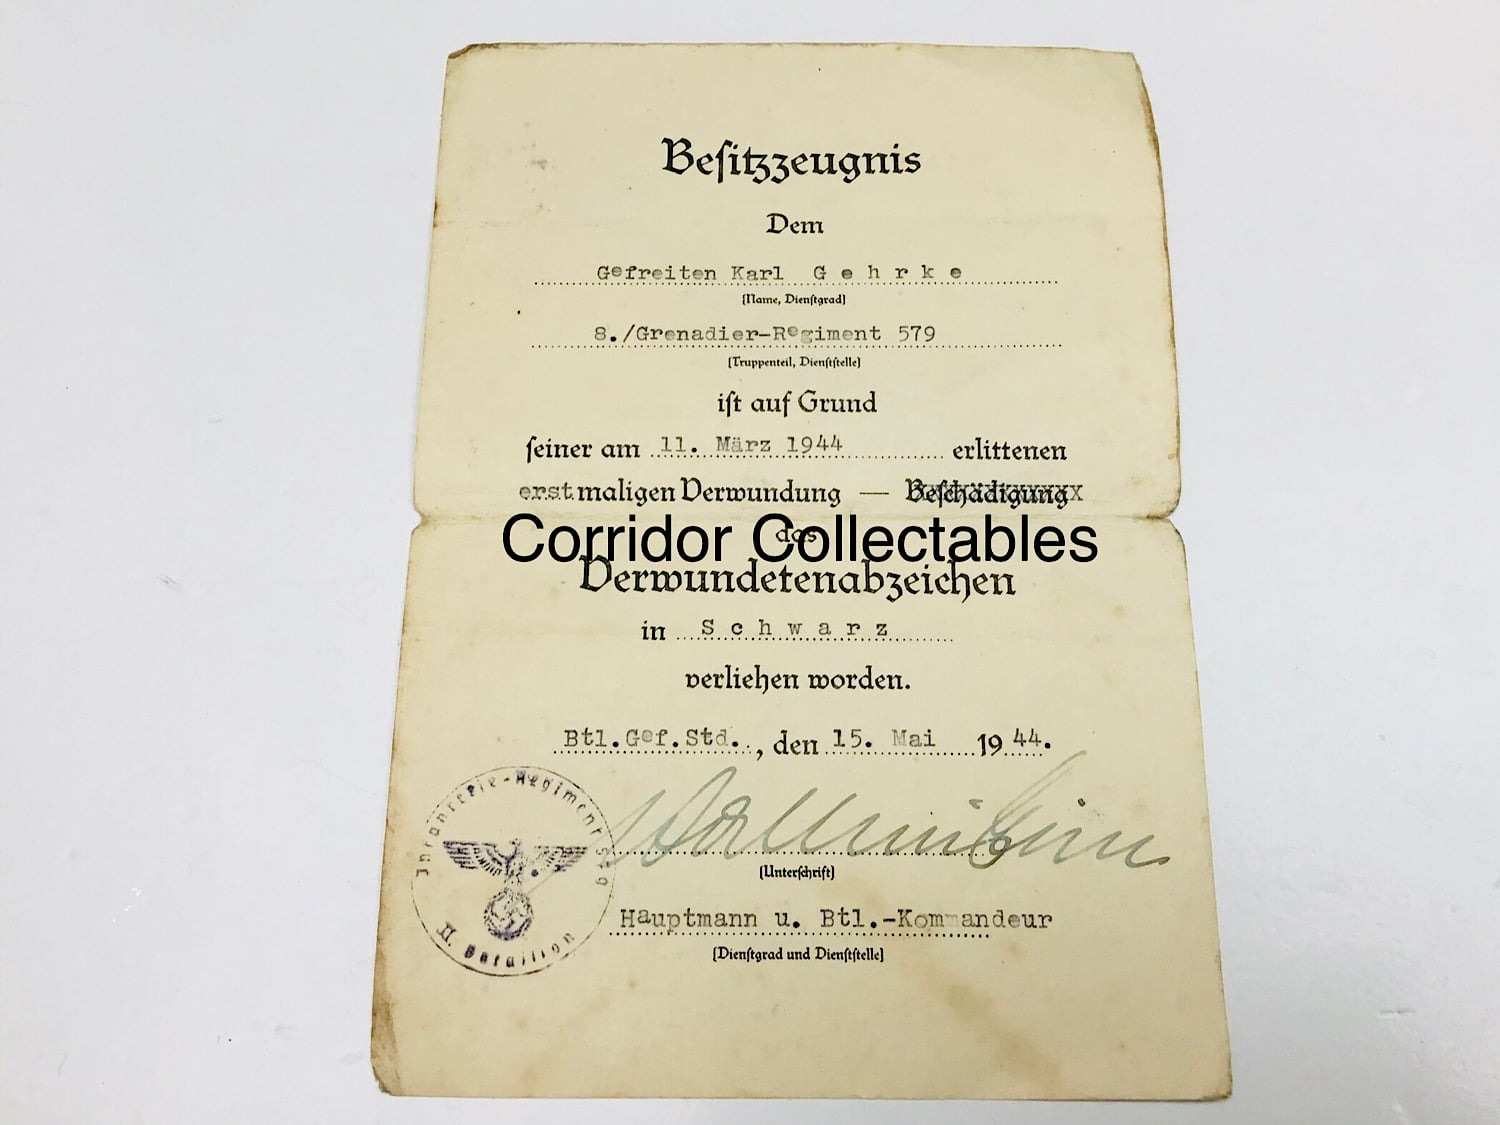 Besitzzeugnis
Dem
Gefreiten Karl G e h r k e
(Name, Dienstgrad)
8./Grenadier-Regiment 579
(Truppenteil, Dienststelle)
ist auf Grund
seiner am 11. März 1944 erlittenen
erstmaligen Verwundung — Beschädigung
das
Corridor Collectables
Verwundetenabzeichen
in S c h w a r z
verliehen worden.
Btl.Gef.Std., den 15. Mai 1944.
(Unterschrift)
Hauptmann u. Btl.-Kommandeur
(Dienstgrad und Dienststelle)
Infanterie-Regiment
II. Bataillon